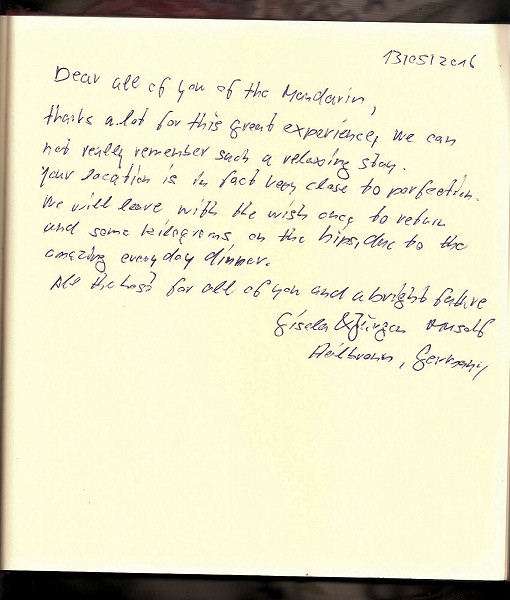 13/05/2016
Dear all of you of the Mandarin,
thanks a lot for this great experience, we can
not really remember such a relaxing stay.
Your location is in fact very close to perfection.
We will leave, with the wish once to return
and some kilograms, on the hips, due to the
amazing everyday dinner.
All the best for all of you and a bright future
Gisela & Jürgen
Heilbronn, Germany